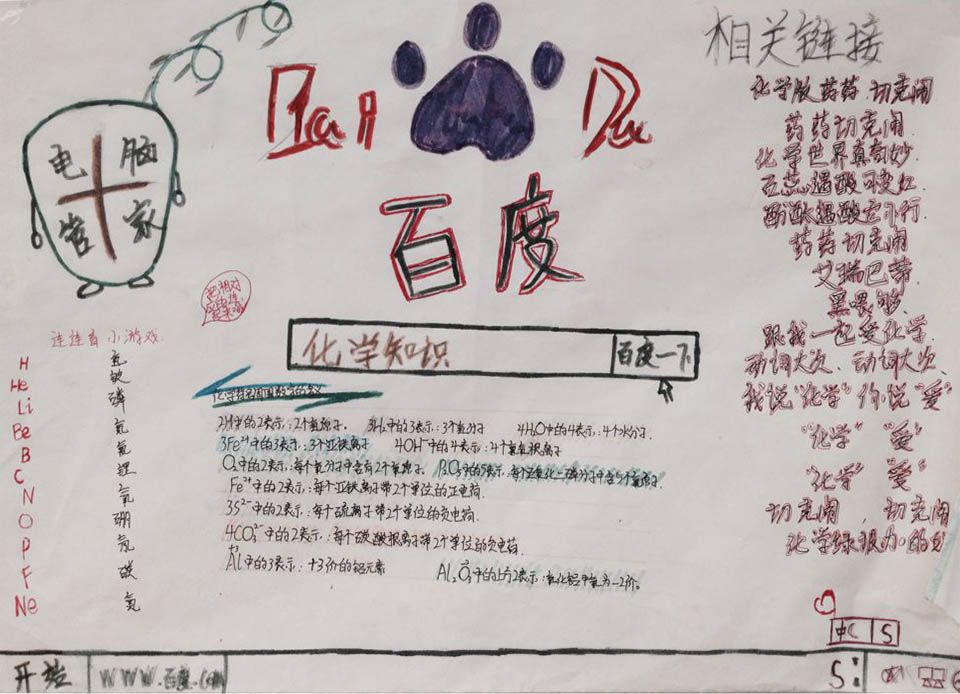 Bai Du
百度
电脑
管家
把相对应的连起来哦
化学知识 百度一下
化学符号周围数字的意义
2H中的2表示：2个氢原子。 3H₂中的3表示：3个氢分子 4H₂O中的4表示：4个水分子。
3Fe²⁺中的3表示：3个亚铁离子 4OH⁻中的4表示：4个氢氧根离子
O₂中的2表示：每个氧分子中含有2个氧原子。 P₂O₅中的5表示：每个五氧化二磷分子中含5个氧原子
Fe²⁺中的2表示：每个亚铁离子带2个单位的正电荷.
3S²⁻中的2表示：每个硫离子带2个单位的负电荷.
4CO₃²⁻中的2表示：每个碳酸根离子带2个单位的负电荷.
Al中的3表示：+3价的铝元素
Al₂O₃中的上方2表示：氧化铝中氧为-2价。
连连看小游戏.
H
He
Li
Be
B
C
N
O
P
F
Ne
氢
磷
氧
硼
碳
氮
相关链接
化学版药药.切克闹
药药切克闹
化学世界真奇妙
石蕊遇酸可变红.
酚酞遇酸它不行.
药药切克闹
艾瑞巴蒂
黑喂狗
跟我一起爱化学.
动词大次、动词大次.
我说"化学"你说"爱"
"化学" "爱"
"化学" "爱"
切克闹，切克闹
中 S
开始 www.百度.com
S: